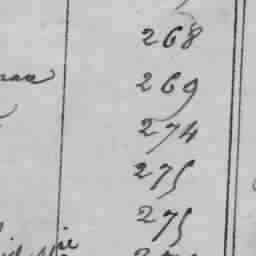 268
269
274
275
275